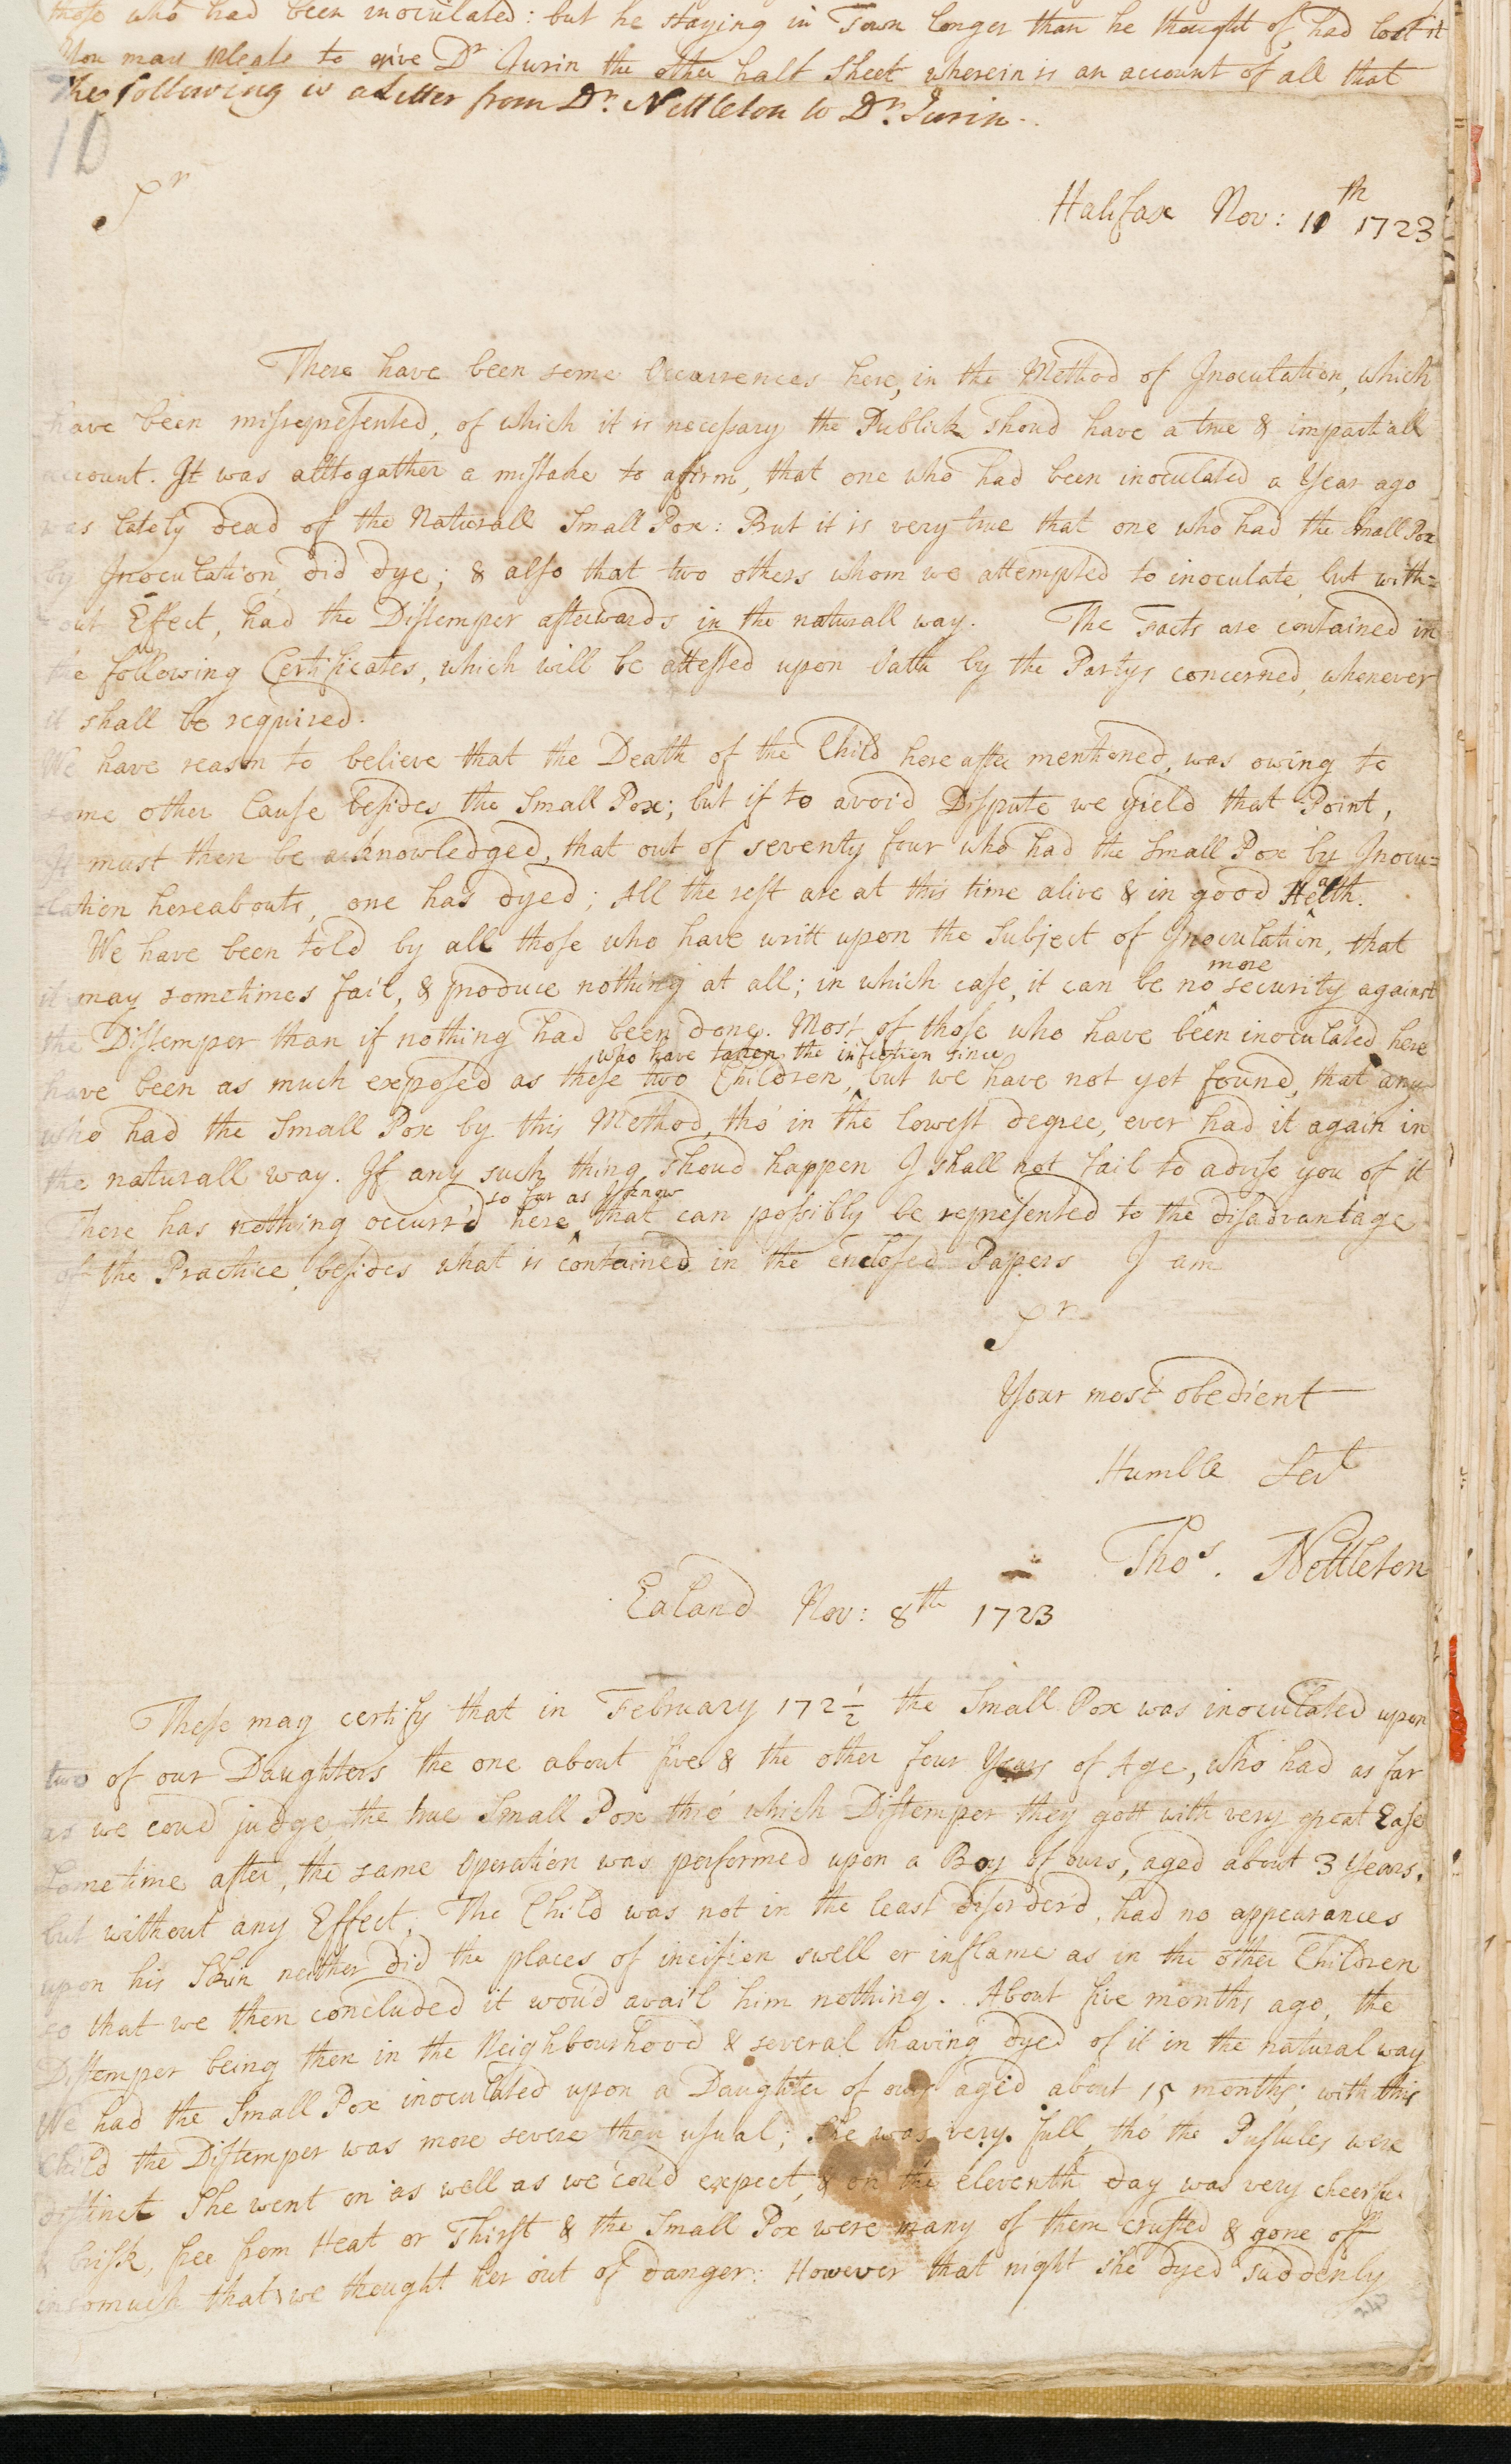 those who had been inoculated: but he staying in Town longer than he thought of, had lost it
You may please to give Dr Jurin the other half sheet wherein is an account of all that
The following is a Letter from Dr. Nettleton to Dr. Jurin.
10
Sr
Halifax Nov: 11th 1723
There have been some Occurrences here, in the Method of Inoculation, which
have been misrepresented, of which it is necessary the Publick shoud have a true & impartiall
account. It was alltogather a mistake to afirm, that one who had been inoculated a Year ago
was lately dead of the Naturall Small Pox: But it is very true that one who had the Small Pox
by Inoculation did dye; & also that two others whom we attempted to inoculate, but with=
=out Effect, had the Distemper afterwards in the naturall way. The Facts are contained in
the following Certificates, which will be attested upon Oath by the Partys concerned, whenever
it shall be required.
We have reason to believe that the Death of the Child here after mentioned, was owing to
some other Cause besides the Small Pox; but if to avoid Dispute we yield that Point,
It must then be acknowledged, that out of seventy four who had the Small Pox by Inocu=
=lation hereabouts, one has dyed; All the rest are at this time alive & in good Health.
We have been told by all those who have writt upon the Subject of Inoculation, that
it may sometimes fail, & produce nothing at all; in which case, it can be no more security against
the Distemper than if nothing had been done. Most of those who have been inoculated here
have been as much exposed as these two Children, who have taken the infection since but we have not yet found, that any
who had the Small Pox by this Method, tho' in the lowest degree, ever had it again in
the naturall way. If any such thing shoud happen I shall not fail to advise you of it
There has nothing occurr'd here, so far as I know that can possibly be represented to the disadvantage
of the Practice, besides what is contained in the enclosed Papers I am
Sr
Your most obedient
Humble Sert
Thos. Nettleton
Ealand Nov: 8th 1723
These may certify that in February 172 1/2 the Small Pox was inoculated upon
two of our Daughters the one about five & the other four Years of Age, who had as far
as we coud judge the true Small Pox thro' which Distemper they gott with very great Ease
Sometime after, the same Operation was performed upon a Boy of ours, aged about 3 Years,
but without any Effect. The Child was not in the least disorder'd, had no appearances
upon his Skin neither did the places of incision swell or inflame as in the other Children
so that we then concluded it woud avail him nothing. About five months ago, the
Distemper being then in the Neighbourhood & several having dyed of it in the natural way
We had the Small Pox inoculated upon a Daughter of ours aged about 15 months; with this
Child the Distemper was more severe than usual; She was very full, tho' the Pustules were
distinct She went on as well as we coud expect, & on the eleventh day was very cheerful
& brisk, free from Heat or Thirst & the Small Pox were many of them crusted & gone off
insomuch that we thought her out of danger: However that night she dyed suddenly